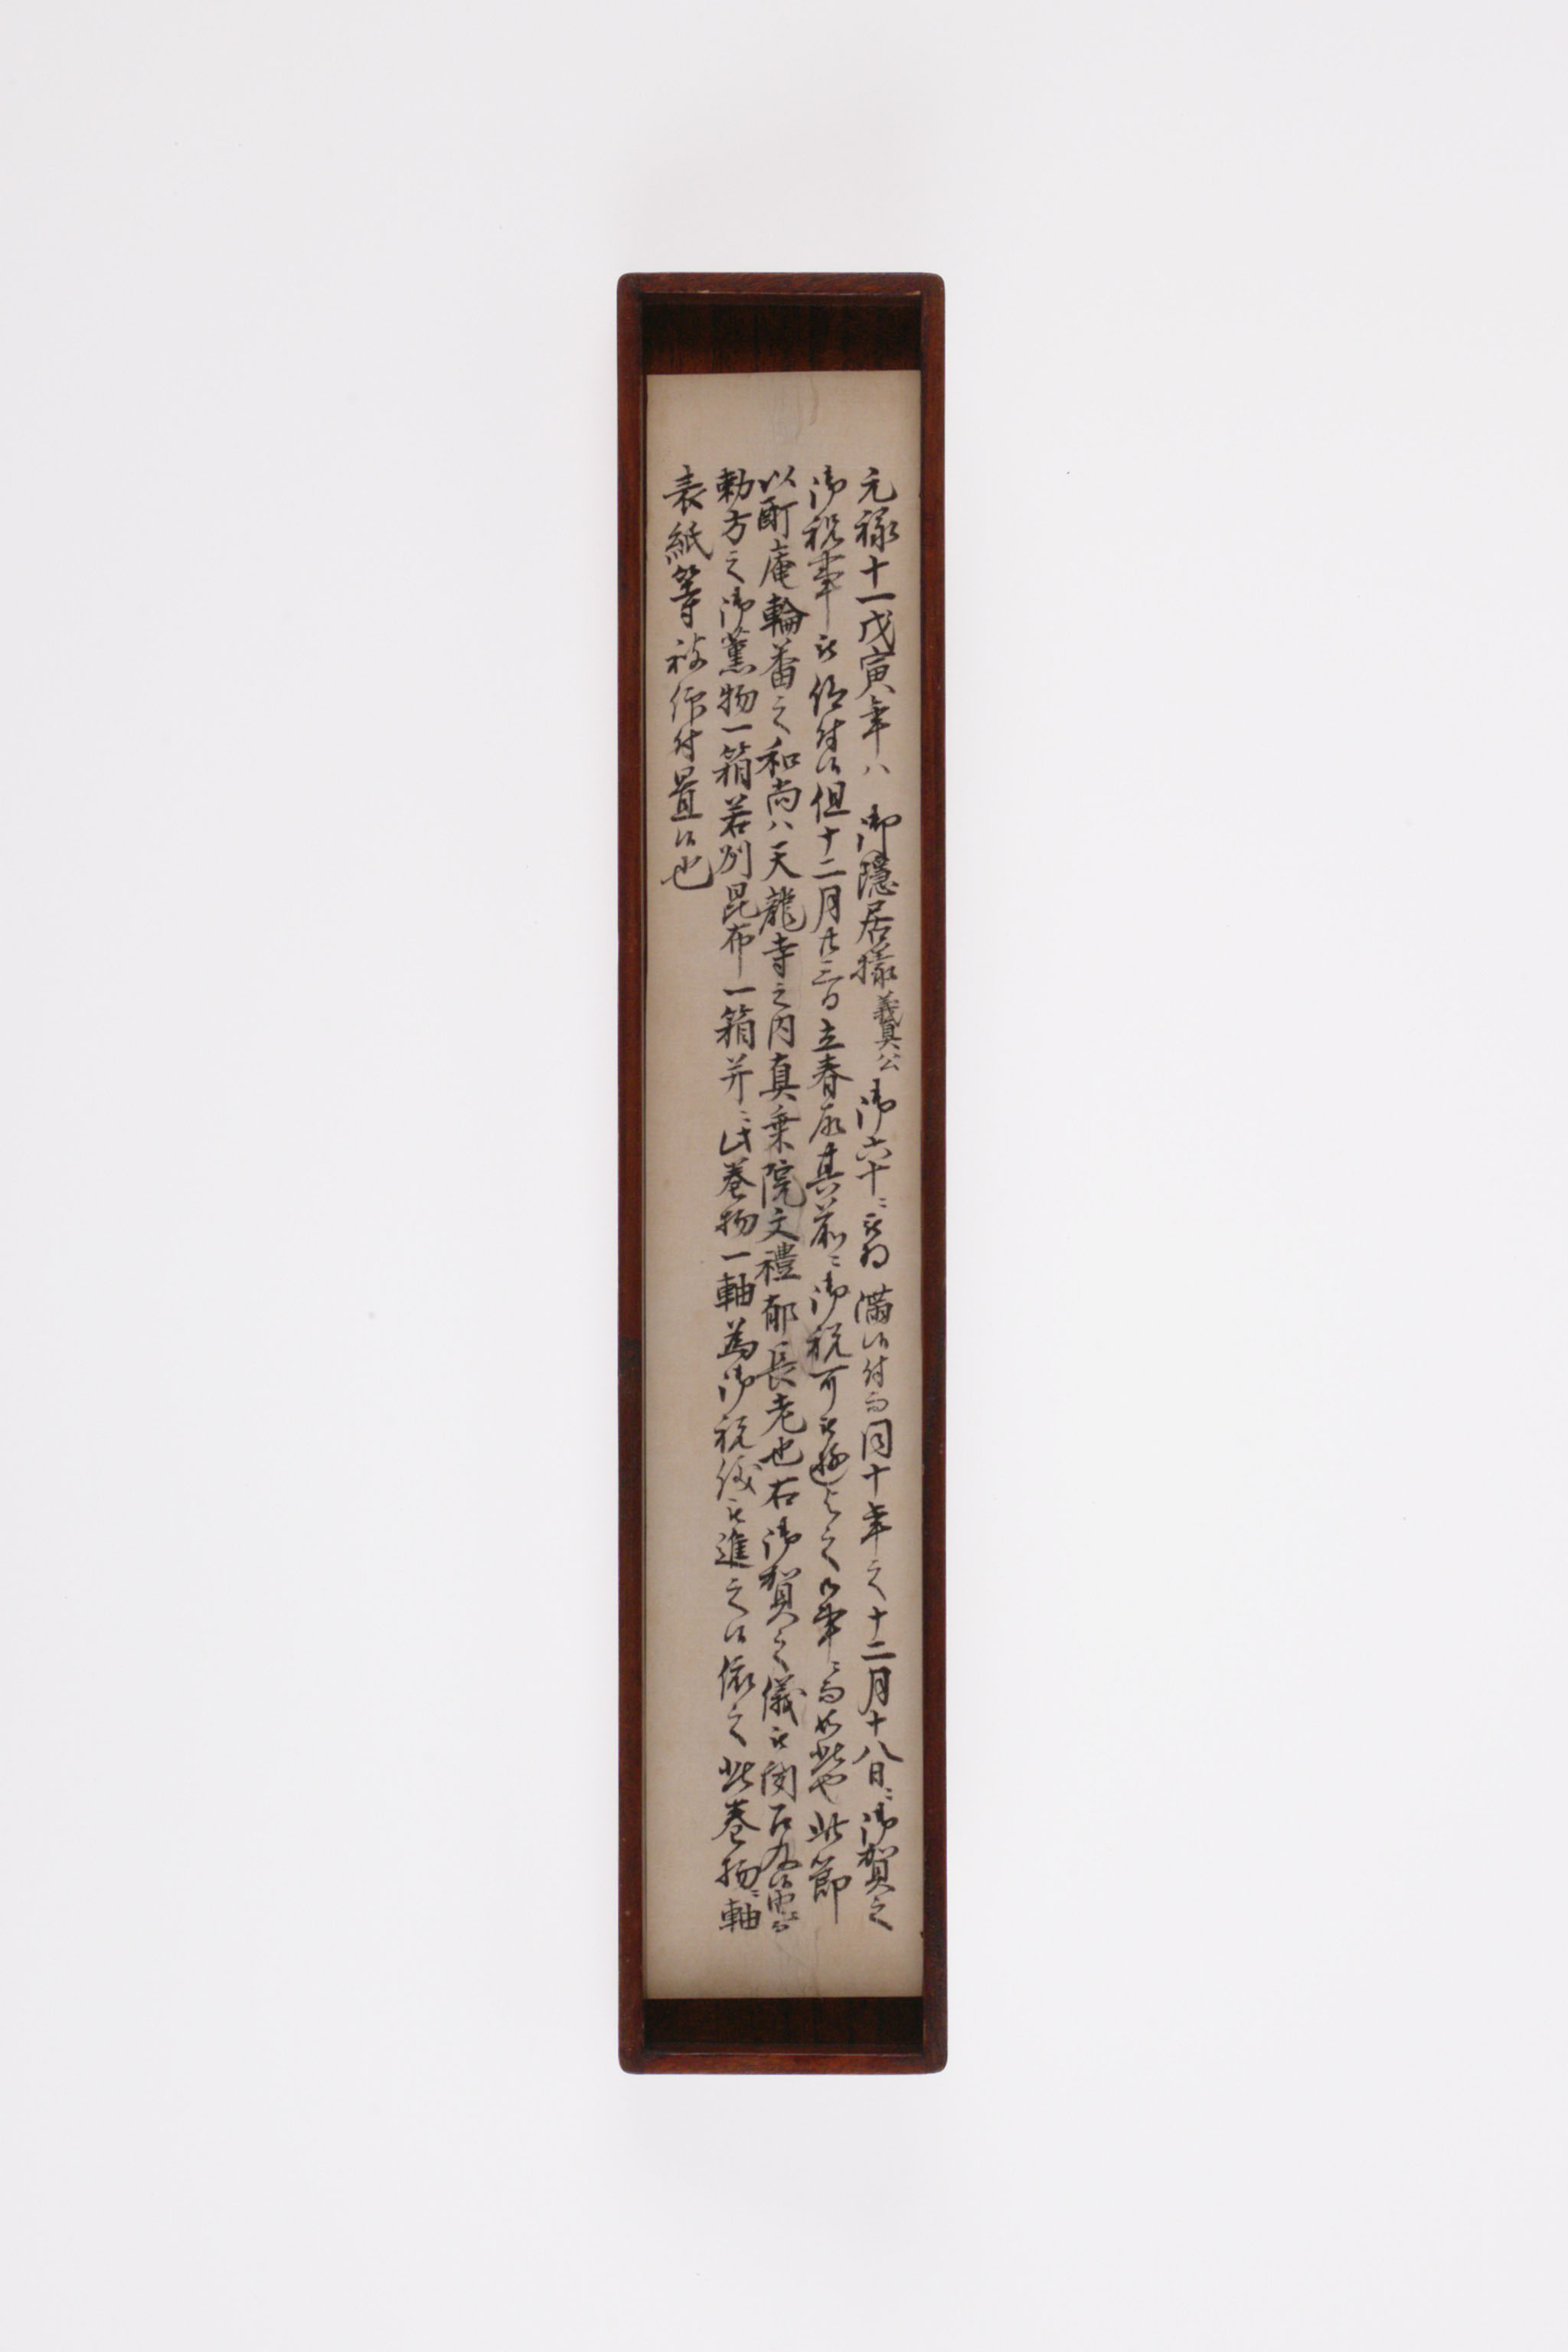 元禄十一戊寅年ハ 御隠居様義真公御六十ニ被為満候付而同十年之十二月十八日ニ御賀之
御祝事被仰付候但十二月廿三日立春故其前ニ御祝可被遊との御事ニ而如此也此節
以酊庵輪番之和尚ハ天龍寺之内真乗院文禮郁長老也右御賀之儀被聞召及候由ニ而
勅方之御薫物一箱若州昆布一箱并ニ此巻物一軸為御祝儀被進之候依之此巻物ニ軸
表紙等被仰付置候也